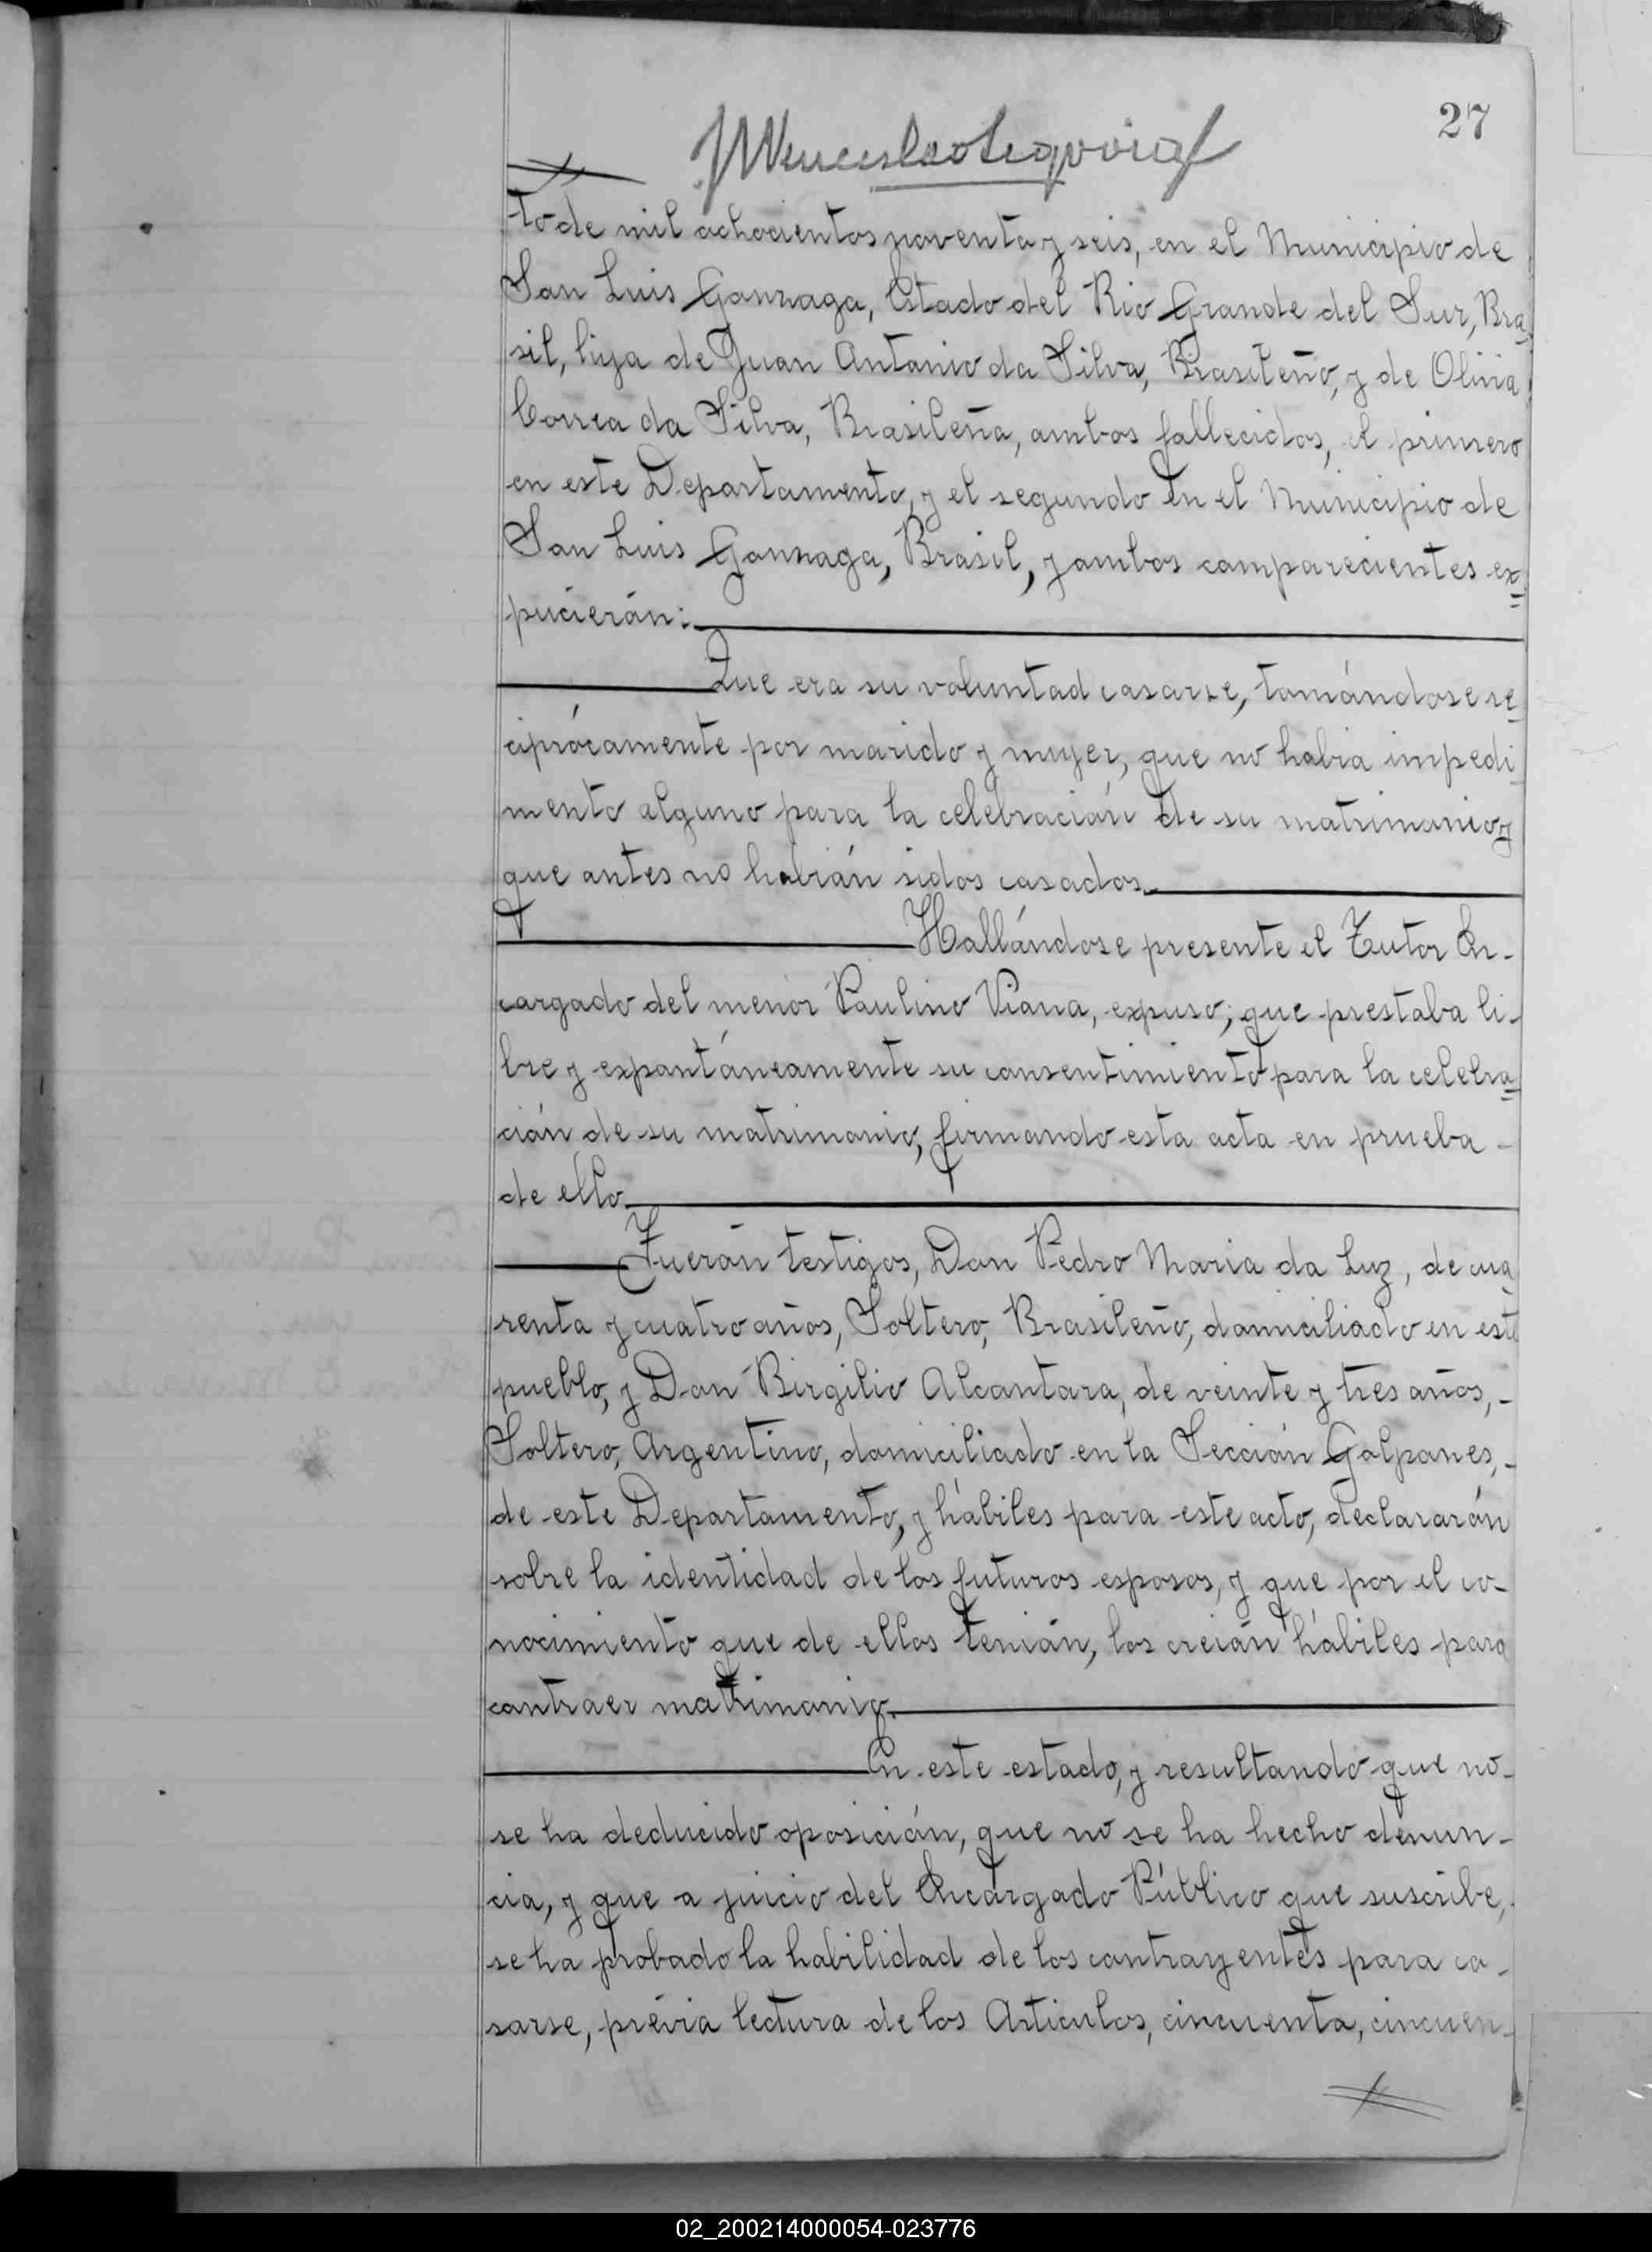 27
to de mil achocientos noventa y seis, en el Municipio de
San Luis Gonzaga, Estado del Rio Grande del Sur, Bra
sil, hija de Juan Antonio da Silva, Brasileño, y de Olivia
Correa da Silva, Brasileña, ambos fallecidos, el primero
en este Departamento, y el segundo en el Municipio de
San Luis Gonzaga, Brasil, y ambos comparecientes ex=
pucierán:
Que era su voluntad casarse, tomándose re
ciprócamente por marido y mujer, que no habia impedi
mento alguno para la celebración de su matrimonio y
que antes no habián sidos casados.
Hallándose presente el Tutor En-
cargado del menor Paulino Viana, expuso; que prestaba li-
bre y expontáneamente su consentimiento para la celebra=
ción de su matrimonio, firmando esta acta en prueba -
de ello.
Fuerón testigos, Don Pedro Maria da Luz, de cua
renta y cuatro años, Soltero, Brasileño, domiciliado en este
pueblo, y Don Birgilio Alcantara, de veinte y tres años, -
Soltero, Argentino, domiciliado en la Sección Galpones, -
de este Departamento, y hábiles para este acto, declararón
sobre la identidad de los futuros esposos, y que por el co-
nocimiento que de ellos tenián, los creián hábiles para
contraer matrimonio.
En este estado, y resultando que no-
se ha deducido oposición, que no se ha hecho denun-
cia, y que a juicio del Encargado Público que suscribe,
se ha probado la habilidad de los contrayentes para ca-
sarse, prévia lectura de los Articulos, cincuenta, cincuen-
02_200214000054-023776